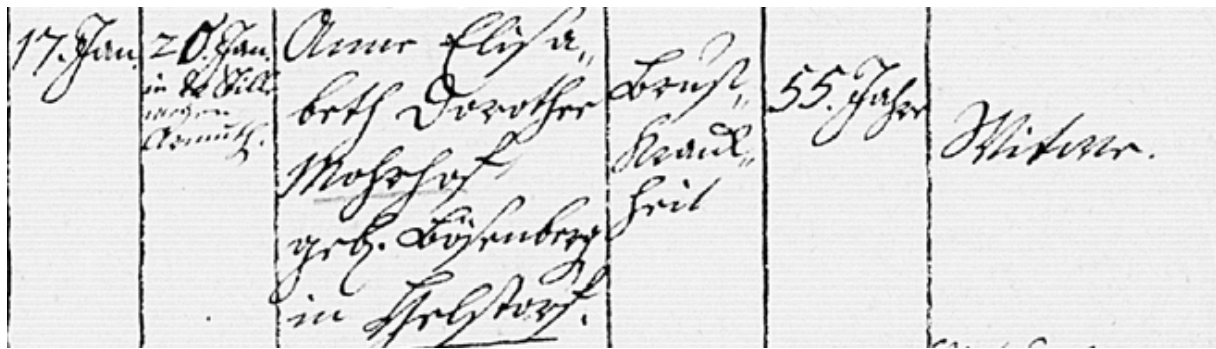 17. Jan.
20. Jan.
in der Stille
wegen
Armuth.
Anne Elisa-
beth Dorothee
Mohrhof
geb. Bösenberg
in Thelstorf.
Brust-
Krank-
heit
55. Jahre
Witwe.